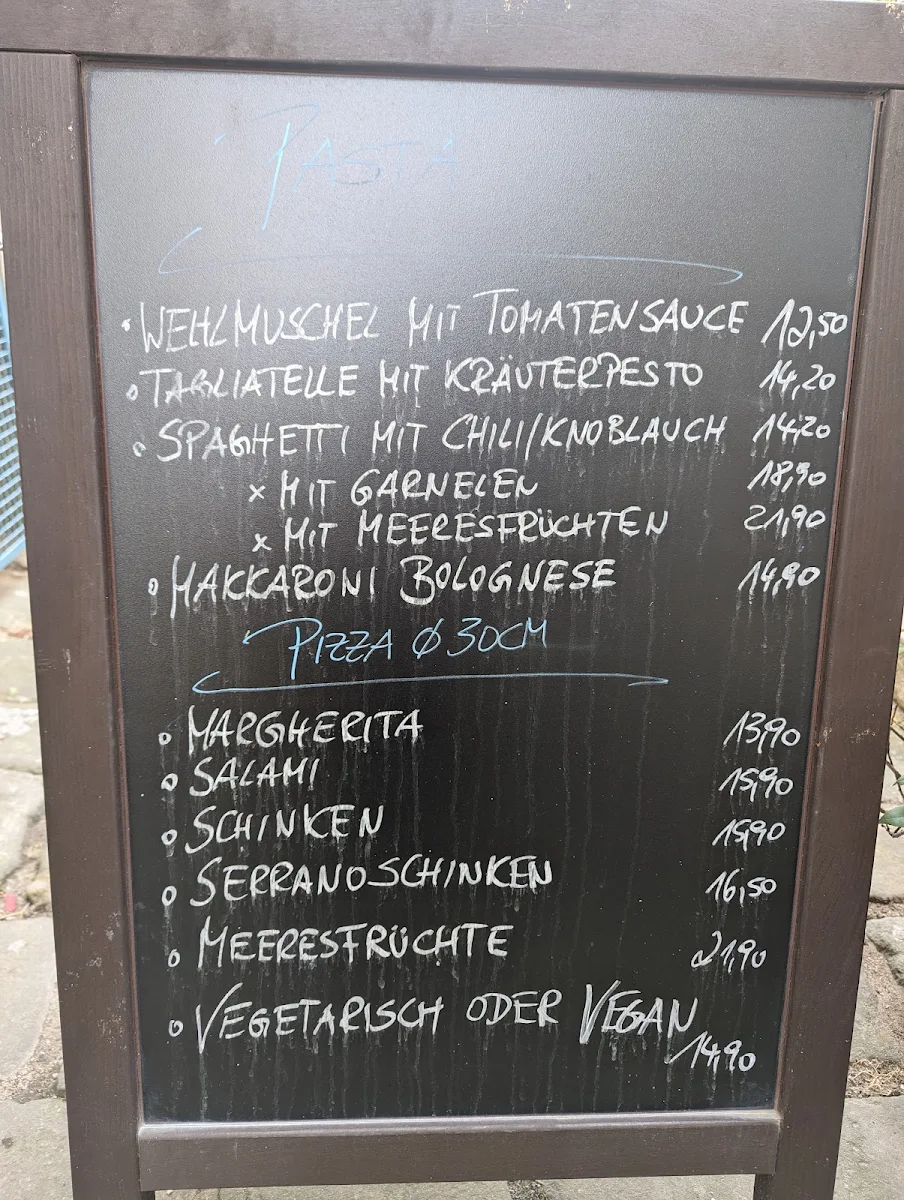 PASTA
• WEHLMUSCHEL MIT TOMATENSAUCE 12,50
• TAGLIATELLE MIT KRÄUTERPESTO 14,20
• SPAGHETTI MIT CHILI/KNOBLAUCH 14,20
x MIT GARNELEN 18,90
x MIT MEERESFRÜCHTEN 21,90
• MAKKARONI BOLOGNESE 14,90
PIZZA Ø 30CM
• MARGHERITA 13,90
• SALAMI 15,90
• SCHINKEN 15,90
• SERRANOSCHINKEN 16,50
• MEERESFRÜCHTE 21,90
• VEGETARISCH ODER VEGAN
14,90